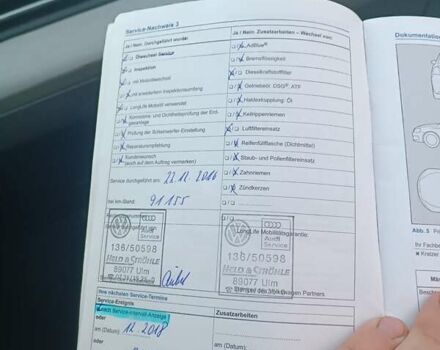 Service-Nachweis 3
Ja / Nein: Durchgeführt wurde:
Ölwechsel-Service
Inspektion
mit Mobilitätscheck
mit erweitertem Inspektionsumfang
LongLife Mobilöl verwendet
Korrosions- und Dichtheitsprüfung der Erdgasanlage
Prüfung der Scheinwerfer-Einstellung
Reparaturempfehlung
Kundenwunsch
(auch auf dem Auftrag vermerken)
Service durchgeführt am: 22.12.2016
bei km-Stand: 91155
Ja / Nein: Zusatzarbeiten – Wechsel von:
AdBlue®
Bremsflüssigkeit
Dieselkraftstofffilter
Getriebeöl: DSG®, ATF
Haldexkupplung: Öl
Keilrippenriemen
Luftfiltereinsatz
Reifenfüllflasche (Dichtmittel)
Staub- und Pollenfiltereinsatz
Zahnriemen
Zündkerzen
LongLife Mobilitätsgarantie:
Audi
Service
136/50598
HELD & STRÖHLE
89077 Ulm
Audi
Service
136/50598
HELD & STRÖHLE
89077 Ulm
Stempel des Volkswagen Partners
Ihre nächsten Service-Termine
Service-Ereignis
nach Service-Intervall-Anzeige
oder
am (Datum): 12.2018
oder
Zusatzarbeiten:
am (Datum):
Dokumentation
Abb. 5
Ihr Fachbe
Kratzer